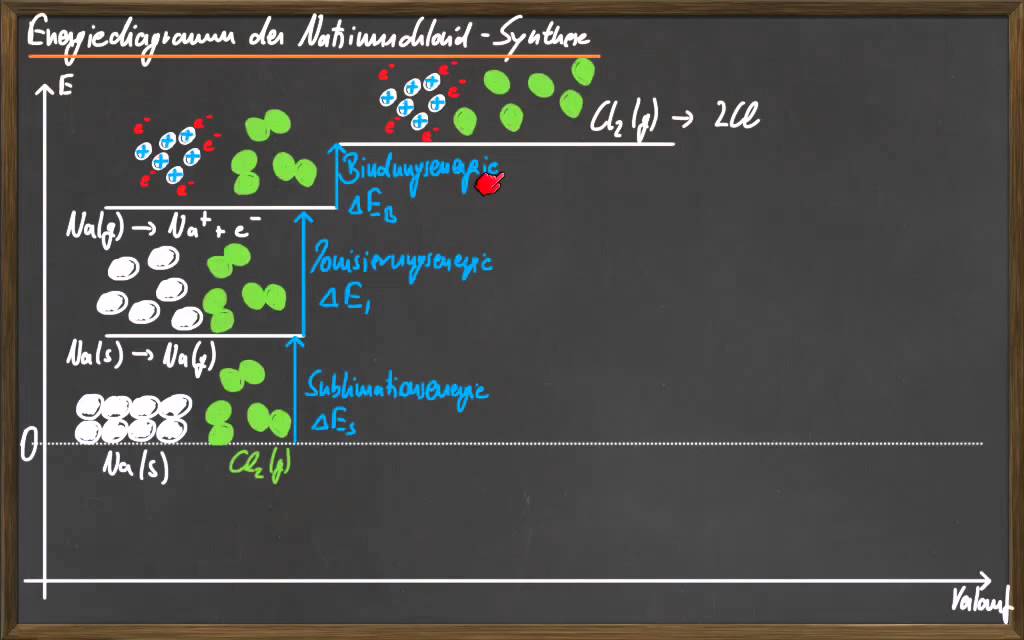 Energiediagramm der Natriumchlorid-Synthese
E
Cl₂(g) → 2Cl
Bindungsenergie
ΔE_B
Na(g) → Na⁺ + e⁻
Ionisierungsenergie
ΔE_I
Na(s) → Na(g)
Sublimationsenergie
ΔE_S
0
Na(s)
Cl₂(g)
Verlauf